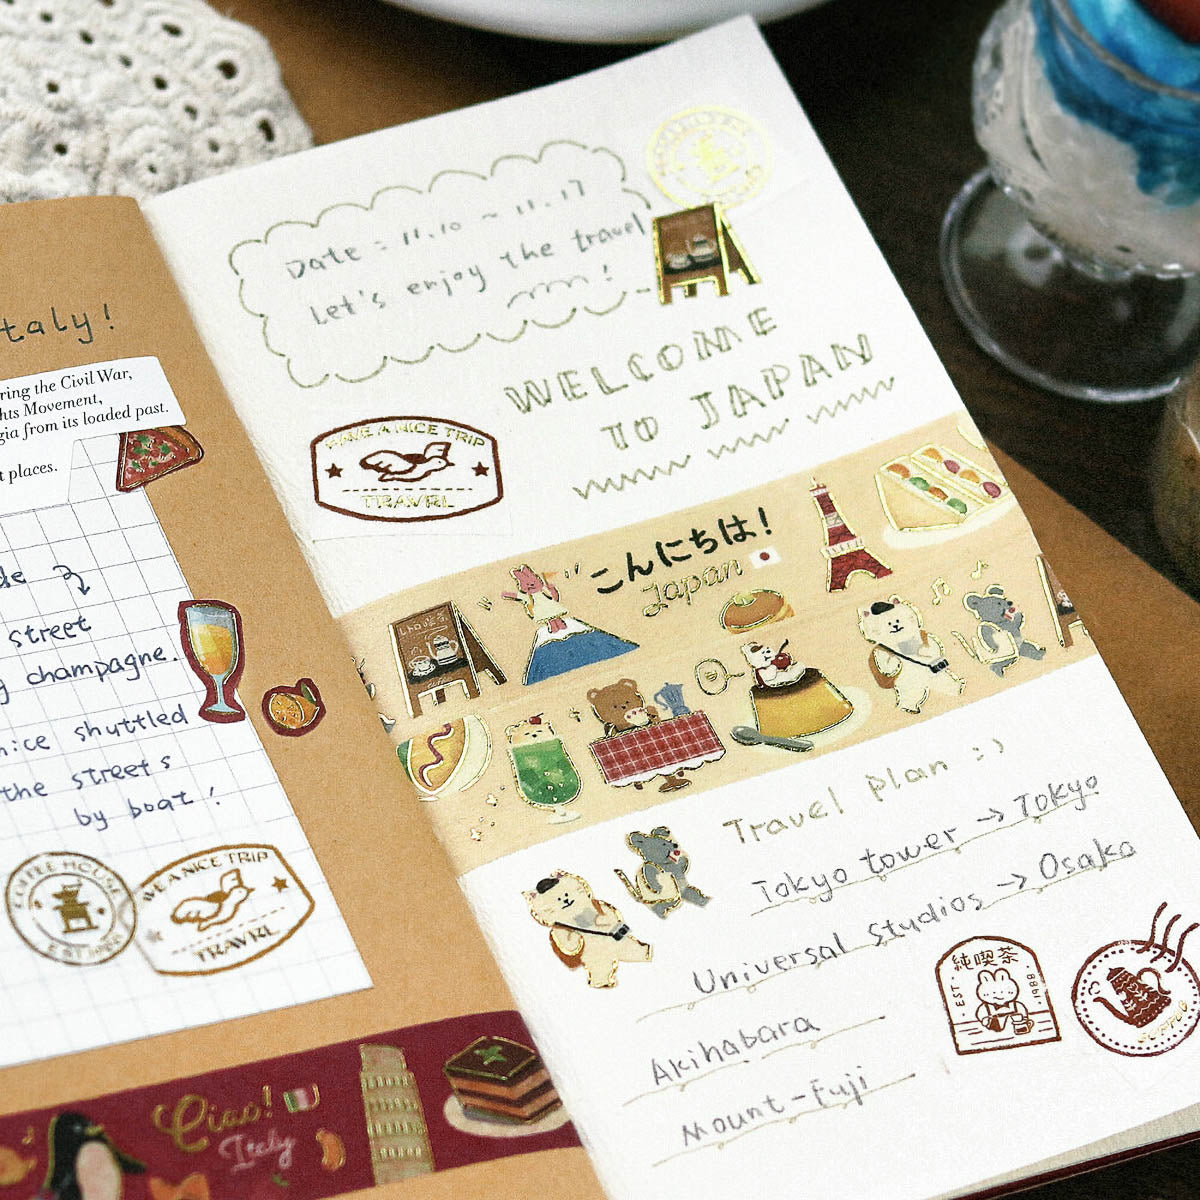 taly!
ring the Civil War,
hts Movement,
gia from its loaded past.
t places.
de
street
y champagne.
nice shuttled
the streets
by boat!
COFFEE HOUSE
A NICE TRIP
TRAVRL
Ciao!
Italy
Date : 11.10 ~ 11.17
Let's enjoy the travel
!
WELCOME
TO JAPAN
HAVE A NICE TRIP
TRAVRL
こんにちは!
Japan
Travel Plan :)
Tokyo tower → Tokyo
Universal Studios → Osaka
Akihabara
Mount-Fuji
純喫茶
EST. 1988
COFFEE